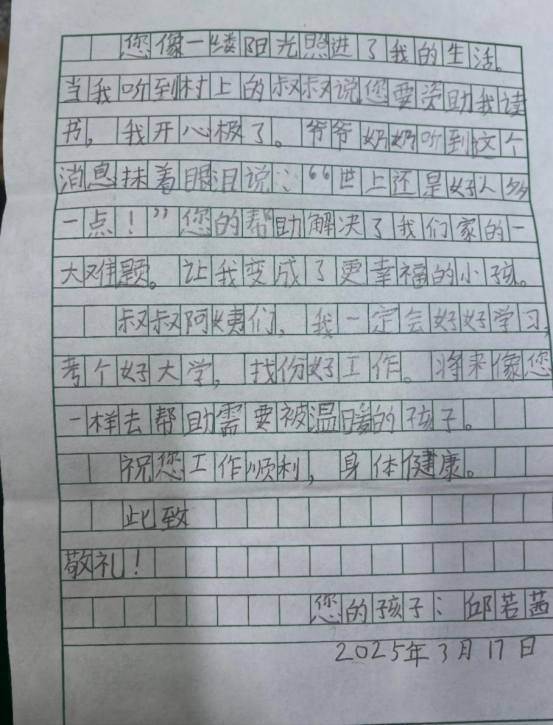 您像一缕阳光照进了我的生活。
当我听到村上的叔叔说您要资助我读
书，我开心极了。爷爷奶奶听到这个
消息抹着眼泪说：“世上还是好人多
一点！”您的帮助解决了我们家的一
大难题。让我变成了更幸福的小孩。
叔叔阿姨们，我一定会好好学习，
考个好大学，找份好工作。将来像您
一样去帮助需要被温暖的孩子。
祝您工作顺利，身体健康。
此致
敬礼！
您的孩子：邱若茜
2025年3月17日